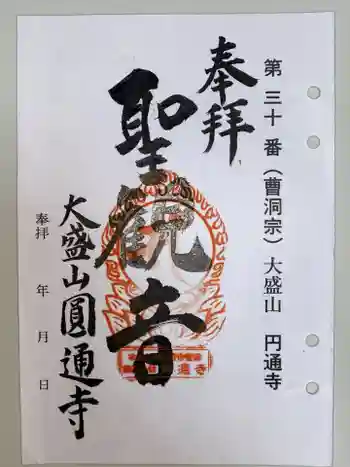 第三十番（曹洞宗）大盛山 円通寺
奉拝
聖観音
大盛山圓通寺
奉拝 年 月 日